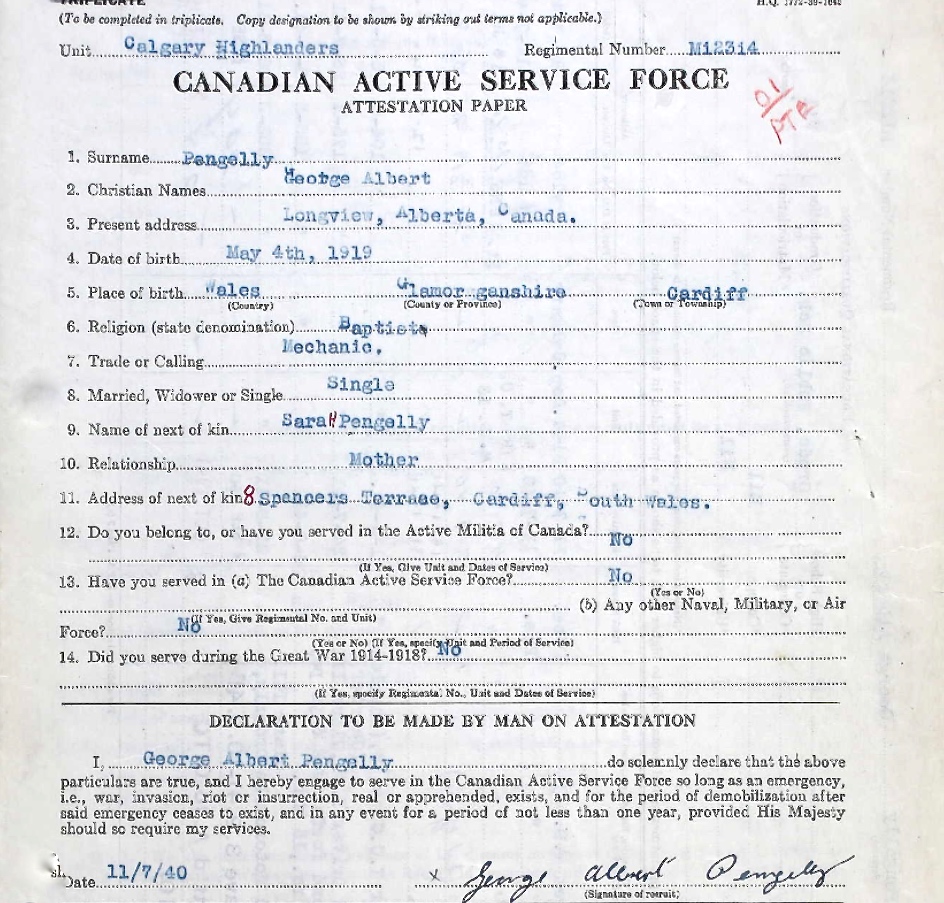 TRIPLICATE H.Q. 1772-39-1642
(To be completed in triplicate. Copy designation to be shown by striking out terms not applicable.)
Unit Calgary Highlanders Regimental Number M12314
CANADIAN ACTIVE SERVICE FORCE
ATTESTATION PAPER
PTE
1. Surname Pengelly
2. Christian Names George Albert
3. Present address Longview, Alberta, Canada.
4. Date of birth May 4th, 1919
5. Place of birth Wales Glamor ganshire Cardiff
(Country) (County or Province) (Town or Township)
6. Religion (state denomination) Baptist
7. Trade or Calling Mechanic.
8. Married, Widower or Single Single
9. Name of next of kin Sarah Pengelly
10. Relationship Mother
11. Address of next of kin 8 Spencers Terrace, Cardiff, South Wales.
12. Do you belong to, or have you served in the Active Militia of Canada? No
(If Yes, Give Unit and Dates of Service)
13. Have you served in (a) The Canadian Active Service Force? No
(Yes or No)
(b) Any other Naval, Military, or Air
(If Yes, Give Regimental No. and Unit)
Force? No
(Yes or No) (If Yes, specify Unit and Period of Service)
14. Did you serve during the Great War 1914-1918? No
(If Yes, specify Regimental No., Unit and Dates of Service)
DECLARATION TO BE MADE BY MAN ON ATTESTATION
I, George Albert Pengelly do solemnly declare that the above
particulars are true, and I hereby engage to serve in the Canadian Active Service Force so long as an emergency,
i.e., war, invasion, riot or insurrection, real or apprehended, exists, and for the period of demobilization after
said emergency ceases to exist, and in any event for a period of not less than one year, provided His Majesty
should so require my services.
Date 11/7/40 x George Albert Pengelly
(Signature of recruit)